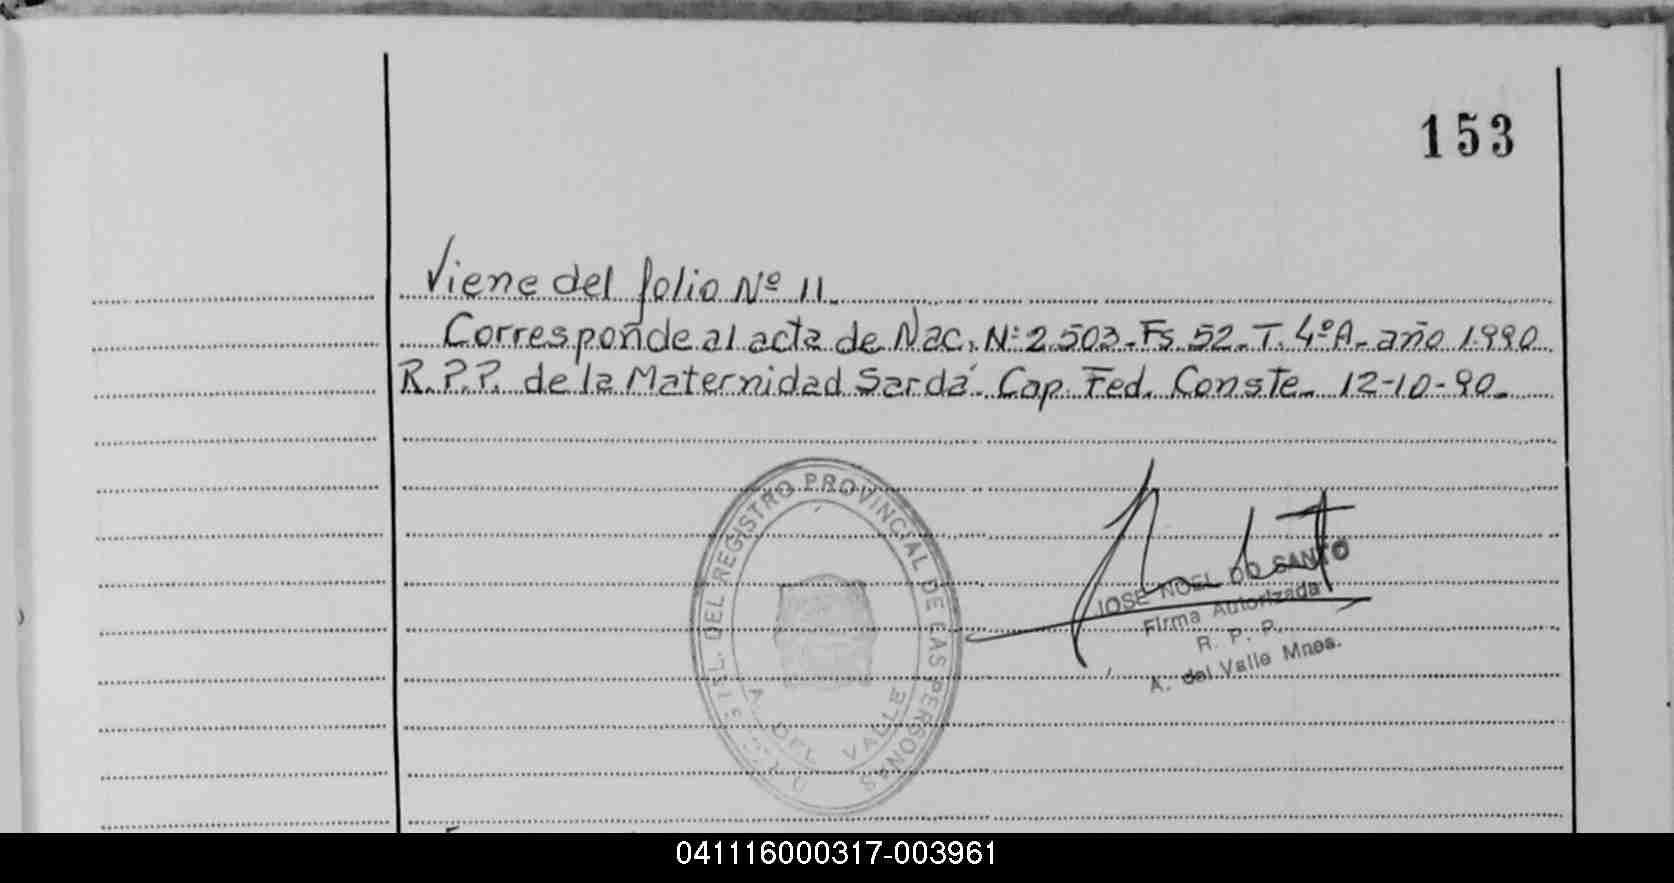 153
Viene del folio Nº 11.
Corresponde al acta de Nac. Nº 2.503-Fs. 52.-T. 4ºA-año 1.990.
R.P.P. de la Maternidad Sardá. Cap. Fed. Conste. 12-10-90.
DEL REGISTRO PROVINCIAL DE LAS PERSONAS
A. DEL VALLE
JOSE NOEL DO SANTO
Firma Autorizada
R. P. P.
A. del Valle Mnes.
041116000317-003961